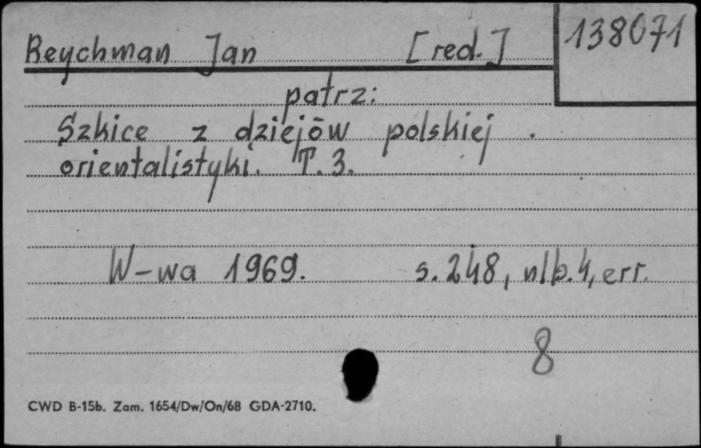 Reychman Jan [red.] 138071
patrz:
Szkice z dziejów polskiej
orientalistyki. T. 3.
W-wa 1969. s. 248, nlb. 4, err.
8
CWD B-15b. Zam. 1654/Dw/On/68 GDA-2710.